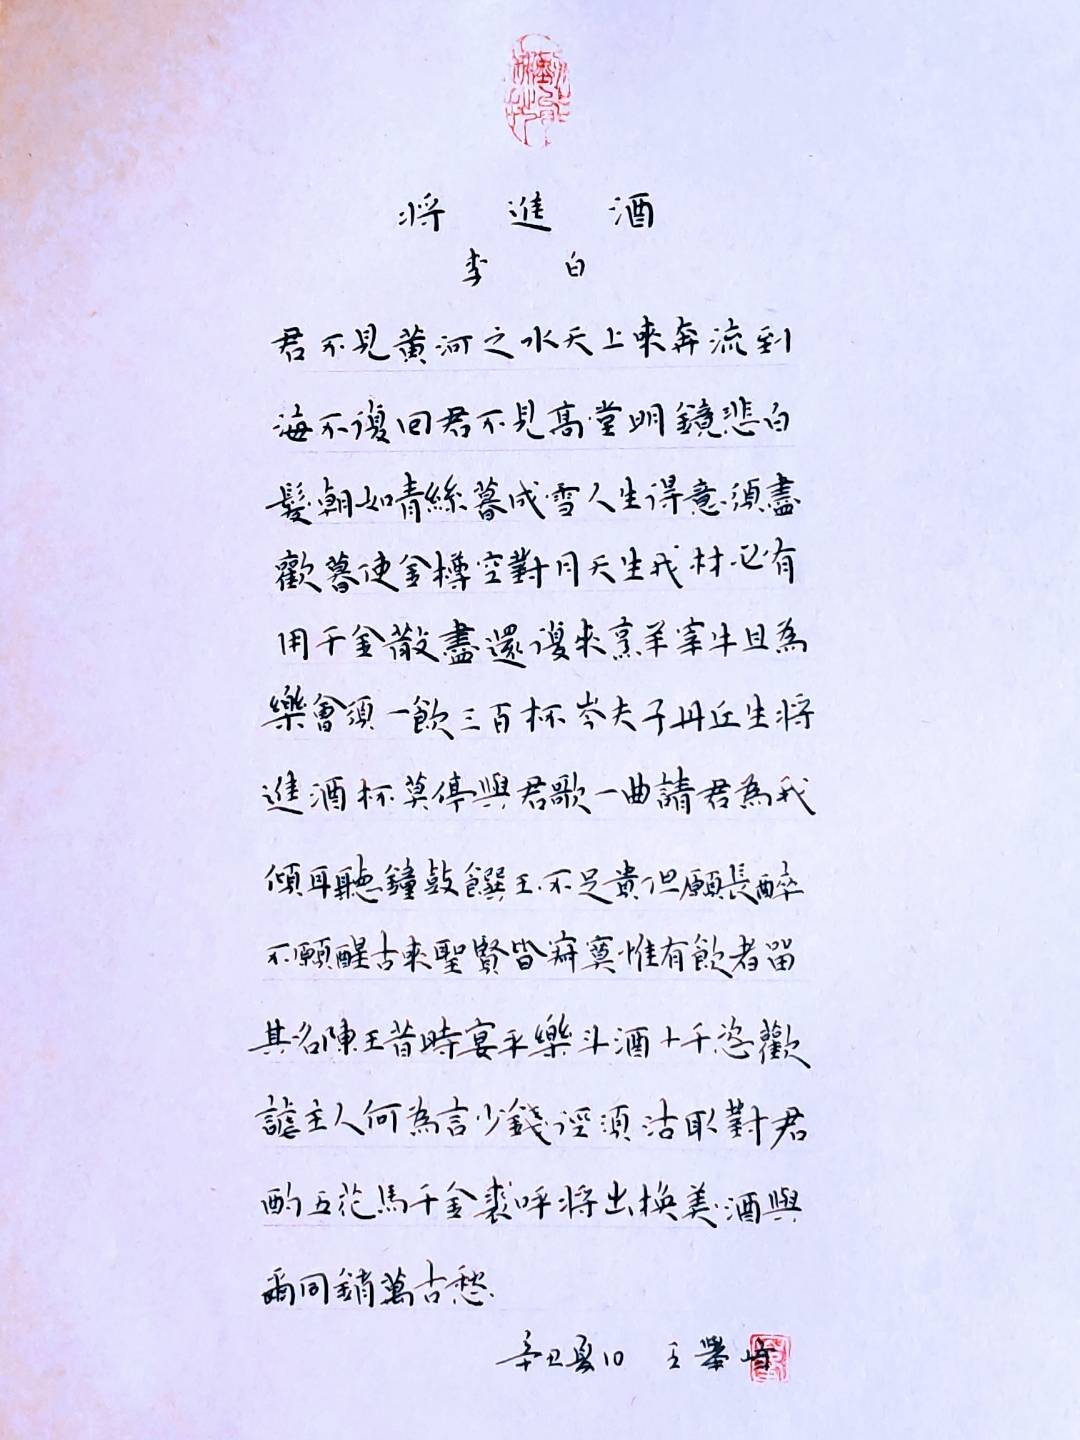 将進酒
李白
君不見黄河之水天上來奔流到
海不復回君不見高堂明鏡悲白
髮朝如青絲暮成雪人生得意須盡
歡暮使金樽空對月天生我材必有
用千金散盡還復來烹羊宰牛且為
樂會須一飲三百杯岑夫子丹丘生将
進酒杯莫停與君歌一曲請君為我
傾耳聽鐘鼓饌玉不足貴但願長醉
不願醒古來聖賢皆寂寞惟有飲者留
其名陳王昔時宴平樂斗酒十千恣歡
謔主人何為言少錢徑須沽取對君
酌五花馬千金裘呼将出換美酒與
爾同銷萬古愁
辛丑夏日 王舉